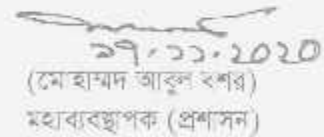 ১৭.১১.২০২০
(মোহাম্মদ আবুল বশর)
মহাব্যবস্থাপক (প্রশাসন)